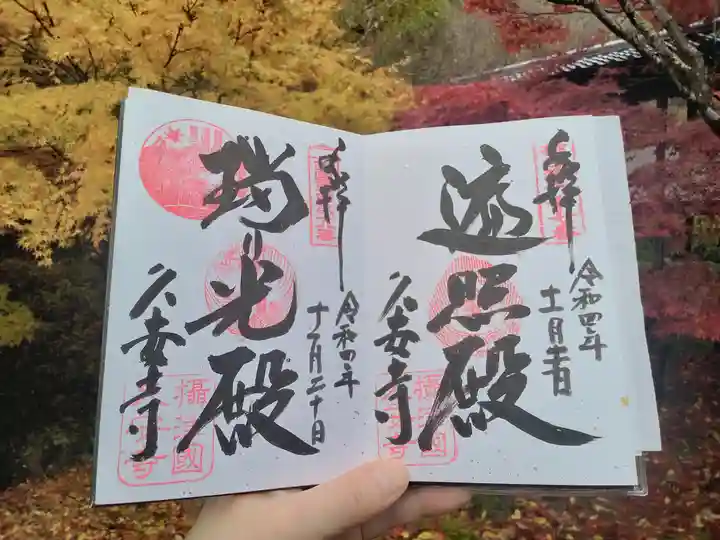 奉拝
令和四年
十一月二十日
遍照殿
久安寺
奉拝
令和四年
十一月二十日
瑞光殿
久安寺
攝津國